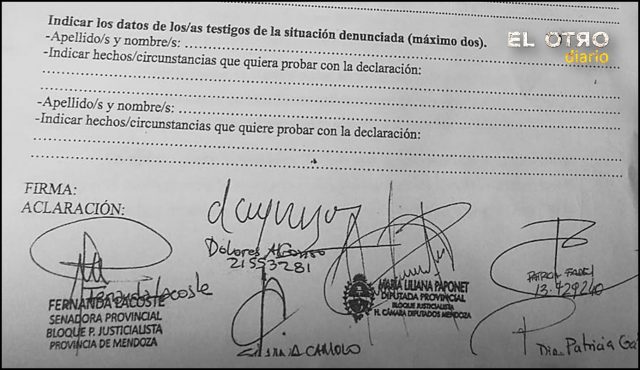 Indicar los datos de los/as testigos de la situación denunciada (máximo dos).
EL OTRO
diario
-Apellido/s y nombre/s:
-Indicar hechos/circunstancias que quiera probar con la declaración:
-Apellido/s y nombre/s:
-Indicar hechos/circunstancias que quiere probar con la declaración:
FIRMA:
ACLARACIÓN:
Dolores Alfonso
21553281
Fernanda Lacoste
FERNANDA LACOSTE
SENADORA PROVINCIAL
BLOQUE P. JUSTICIALISTA
PROVINCIA DE MENDOZA
MARIA LILIANA PAPONET
DIPUTADA PROVINCIAL
BLOQUE JUSTICIALISTA
H. CÁMARA DIPUTADOS MENDOZA
13.929240
SILVINA CAMIOLO
Dip. Patricia